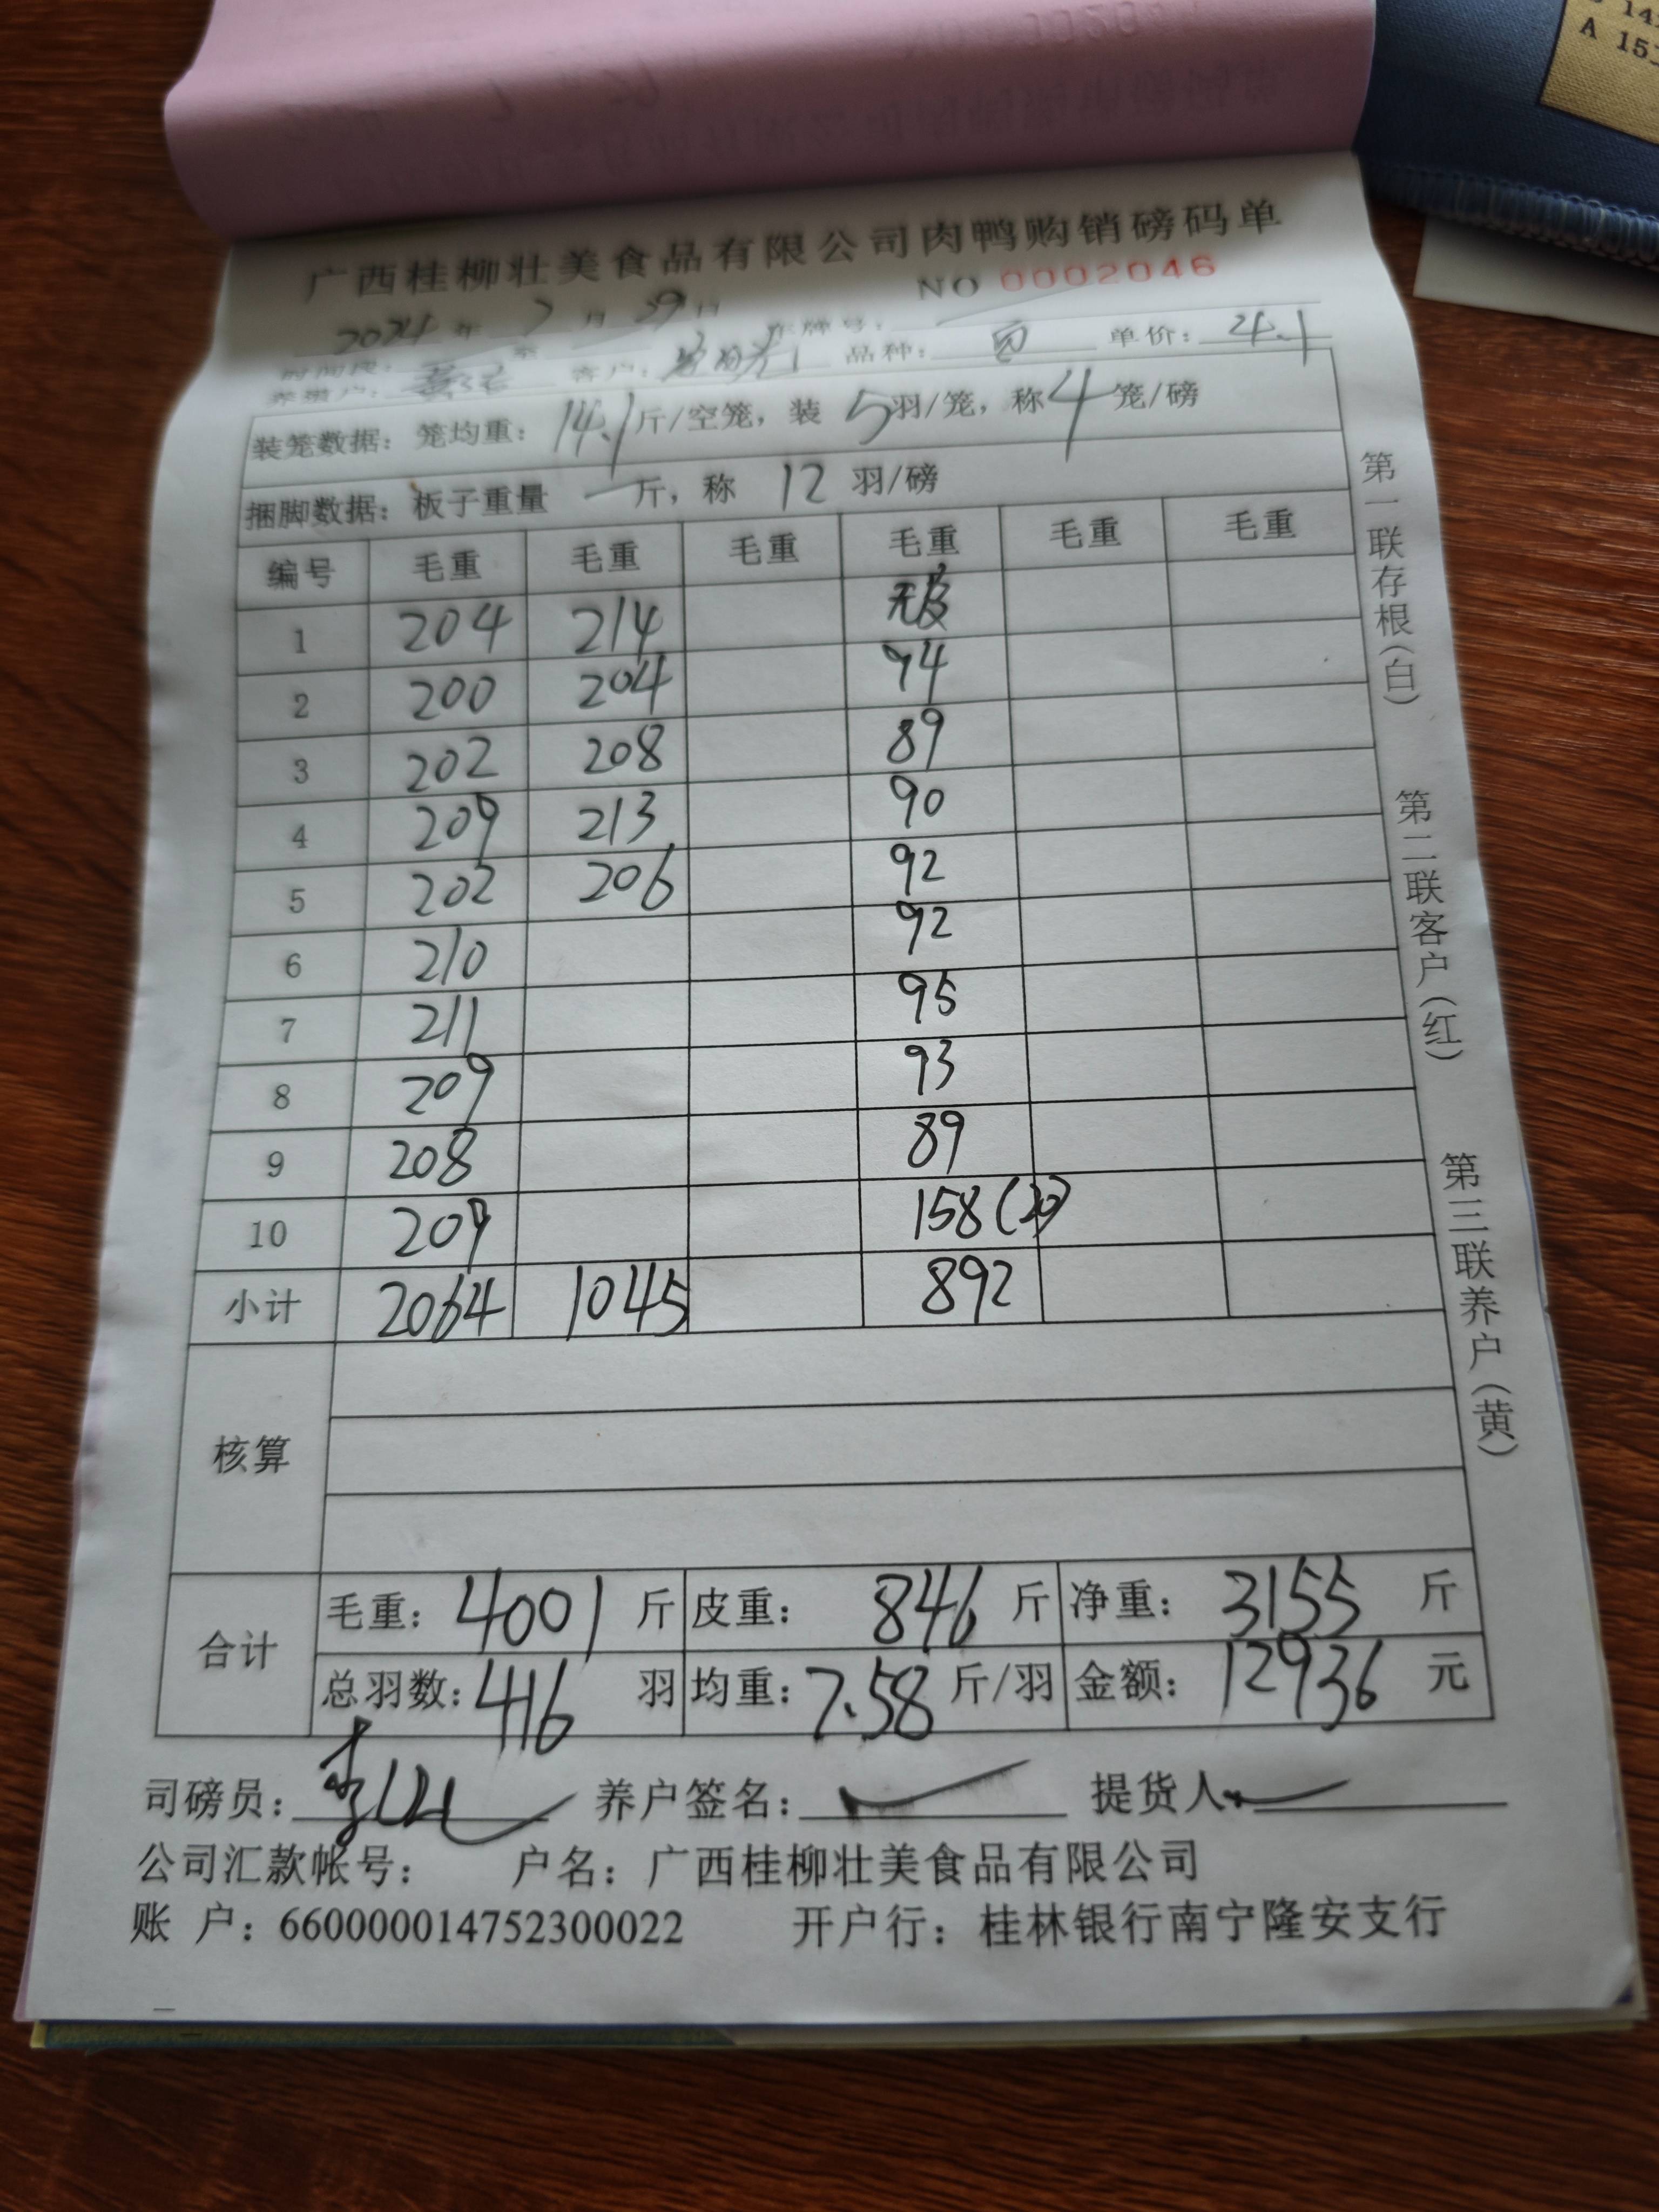 广西桂柳壮美食品有限公司肉鸭购销磅码单
NO 0002046
2024 年 7 月 29 日 车牌号:
时间段: 至
养殖户: 客户: 品种: 白 单价: 4.1
装笼数据: 笼均重: 14.1 斤/空笼, 装 5 羽/笼, 称 4 笼/磅
捆脚数据: 板子重量 一 斤, 称 12 羽/磅
编号 毛重 毛重 毛重 毛重 毛重 毛重
1 204 214 无皮
2 200 204 94
3 202 208 89
4 209 213 90
5 202 206 92
6 210 92
7 211 95
8 209 93
9 208 89
10 209 158 (20)
小计 2064 1045 892
核算
合计
毛重: 4001 斤 皮重: 846 斤 净重: 3155 斤
总羽数: 416 羽 均重: 7.58 斤/羽 金额: 12936 元
司磅员: 养户签名: 提货人:
公司汇款帐号: 户名: 广西桂柳壮美食品有限公司
账 户: 660000014752300022 开户行: 桂林银行南宁隆安支行
第一联存根(白)
第二联客户(红)
第三联养户(黄)
A 15